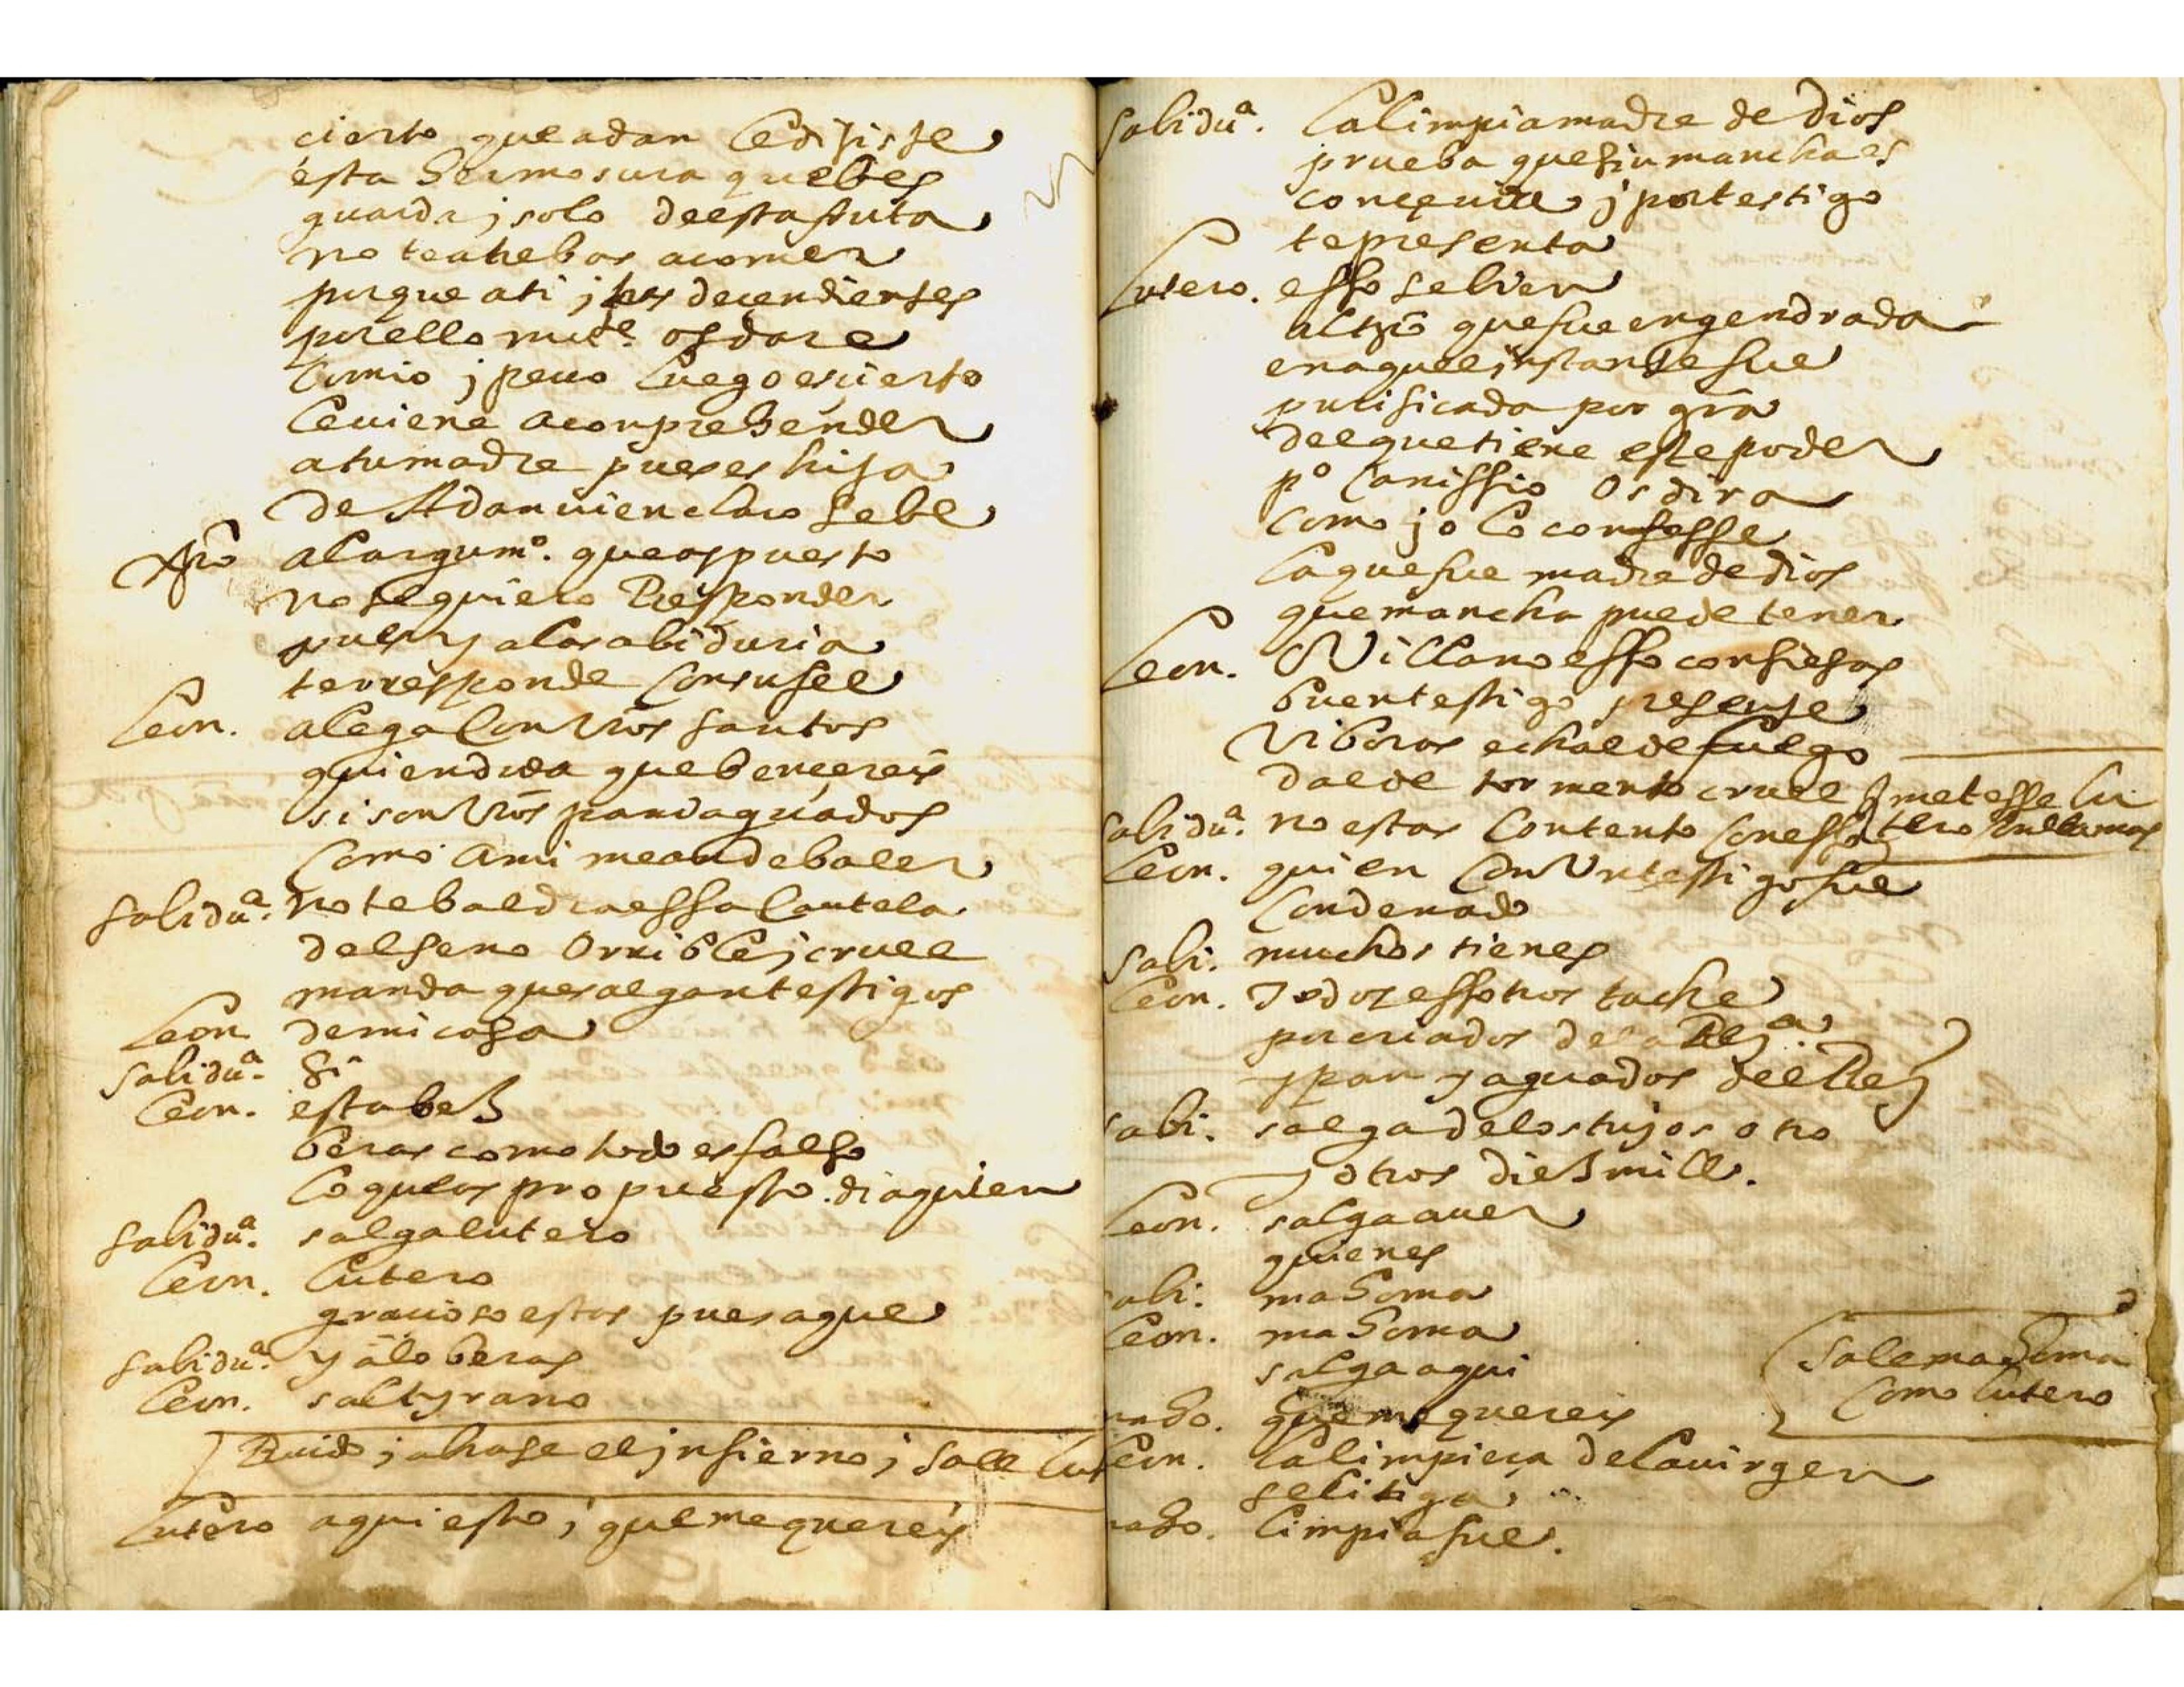 cierto que adan le dijiste
esta hermosura que bes
guarda j solo de esta fruta
no te atrebas a comer
porque a ti j tus decendientes
por ello mute. os dare
comio j peco luego es cierto
le viene a conprehender
a tu madre pues es hija
de Adan vien claro se be
Xpto al argumo. que as puesto
no te quiero Responder
pues y a la sabiduria
te rresponde con su fee
Leon. alega con vros santos
quien duda que benceréis
si son vros paniaguados
como a mi me an de baler
Sabidua. no te baldra essa cautela
del seno orrible j cruel
manda que salgan testigos
Leon de mi casa
Sabidua. Si
Leon. esta bez
beras como todo es falso
lo que as propuesto. di a quien
Sabidua. salga lutero
Leon. lutero
gracioso estas pues a que
Sabidua. y a lo beras
Leon. sal tyrano
Ruido j abrase el jnfierno j sale lut
Lutero aqui esto j que me quereis
Sabidua. la limpia madre de Dios
prueba que sin mancha es
concevida j por testigo
te presenta
Lutero. esso se bien
al tpo que fue engendrada
en aquel jnstante fue
purificada por gra
del que tiene este poder
po canissio os dira
como jo lo confesse
la que fue madre de dios
que mancha puede tener
Leon. Villano esso confiesas
buen testigo presente
viboras echalde fuego
dalde tormento cruel
metesse lu
tero en llamas
Sabidua. no estas contento con esso
Leon. quien con Un testigo fue
condenado
Sabi. muchos tienes
Leon. Todos essotros tache
por criados de la Reja.
y pan y aguados del Rey
Sabi. salga de los tujos otro
y otros diez mill.
Leon. salga a ver
quienes
Sabi. mahoma
Leon. mahoma
salga aqui
Sale mahoma
como lutero
maho. que me quereis
Leon. la limpieça de la virgen
se litiga
maho. limpia fue.